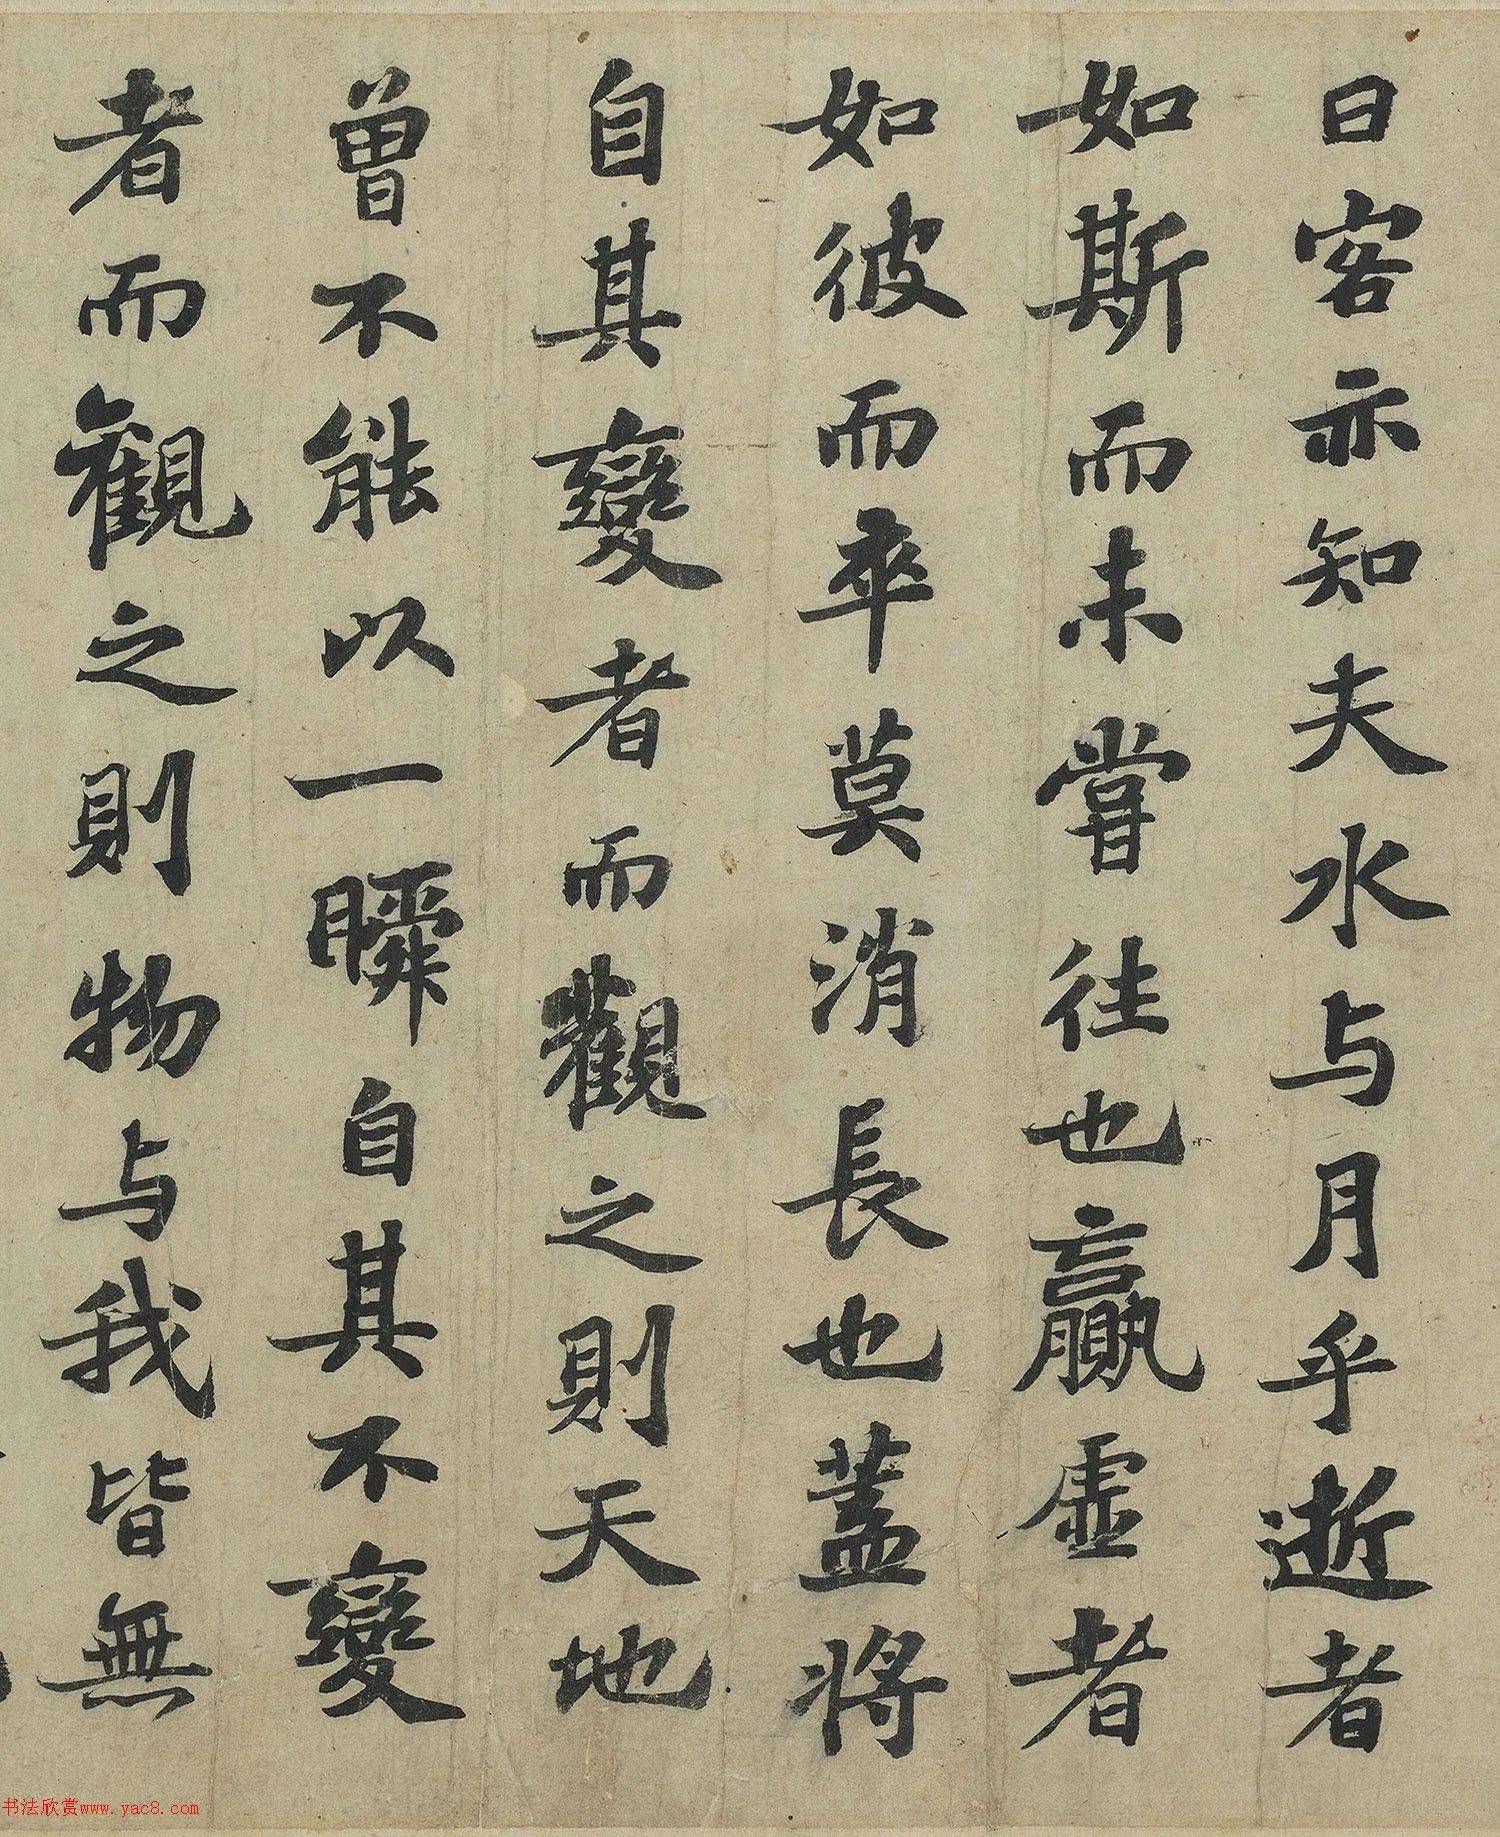 曰客亦知夫水与月乎逝者
如斯而未嘗往也贏虛者
如彼而卒莫消長也蓋將
自其變者而觀之則天地
曾不能以一瞬自其不變
者而觀之則物与我皆無
书法欣赏www.yac8.com